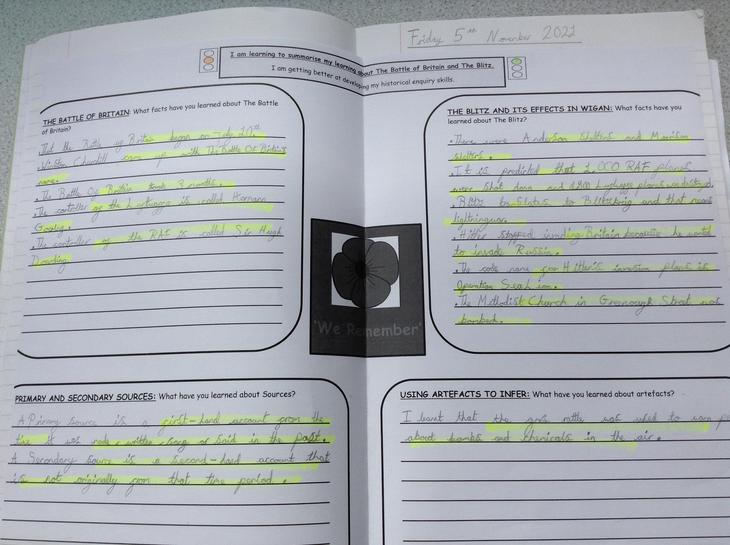 Friday 5th November 2021
I am learning to summarise my learning about The Battle of Britain and The Blitz.
I am getting better at developing my historical enquiry skills.
THE BATTLE OF BRITAIN: What facts have you learned about The Battle
of Britain?
.That the Battle of Britain began on July 10th
.Winston Churchill came up with The Battle Of Britain's
name.
.The Battle Of Britain took 3 months.
.The controller of the Luftwaffe is called Hermann
.The controller of the RAF is called Sir Hugh
Dowding
THE BLITZ AND ITS EFFECTS IN WIGAN: What facts have you
learned about The Blitz?
.There were Anderson Shelters and Morrison
shelters.
.It is predicted that 2,000 RAF planes
were shot down and
.Blitz to Blitzkrieg and that means
lightningwar.
.Hitler stopped invading Britain because he wanted
to invade Russia.
.The code name for Hitler's invasion plans is
Operation Sea lion.
.The Methodist Church in Greenough Street was
bombed.
'We Remember'
PRIMARY AND SECONDARY SOURCES: What have you learned about Sources?
A Primary Source is a first-hand account from the
time it was made, written, sang or said in the past.
A Secondary Source is a second-hand account that
is not originally from that time period.
USING ARTEFACTS TO INFER: What have you learned about artefacts?
I learnt that the gas rattle was used to warn
about bombs and chemicals in the air.